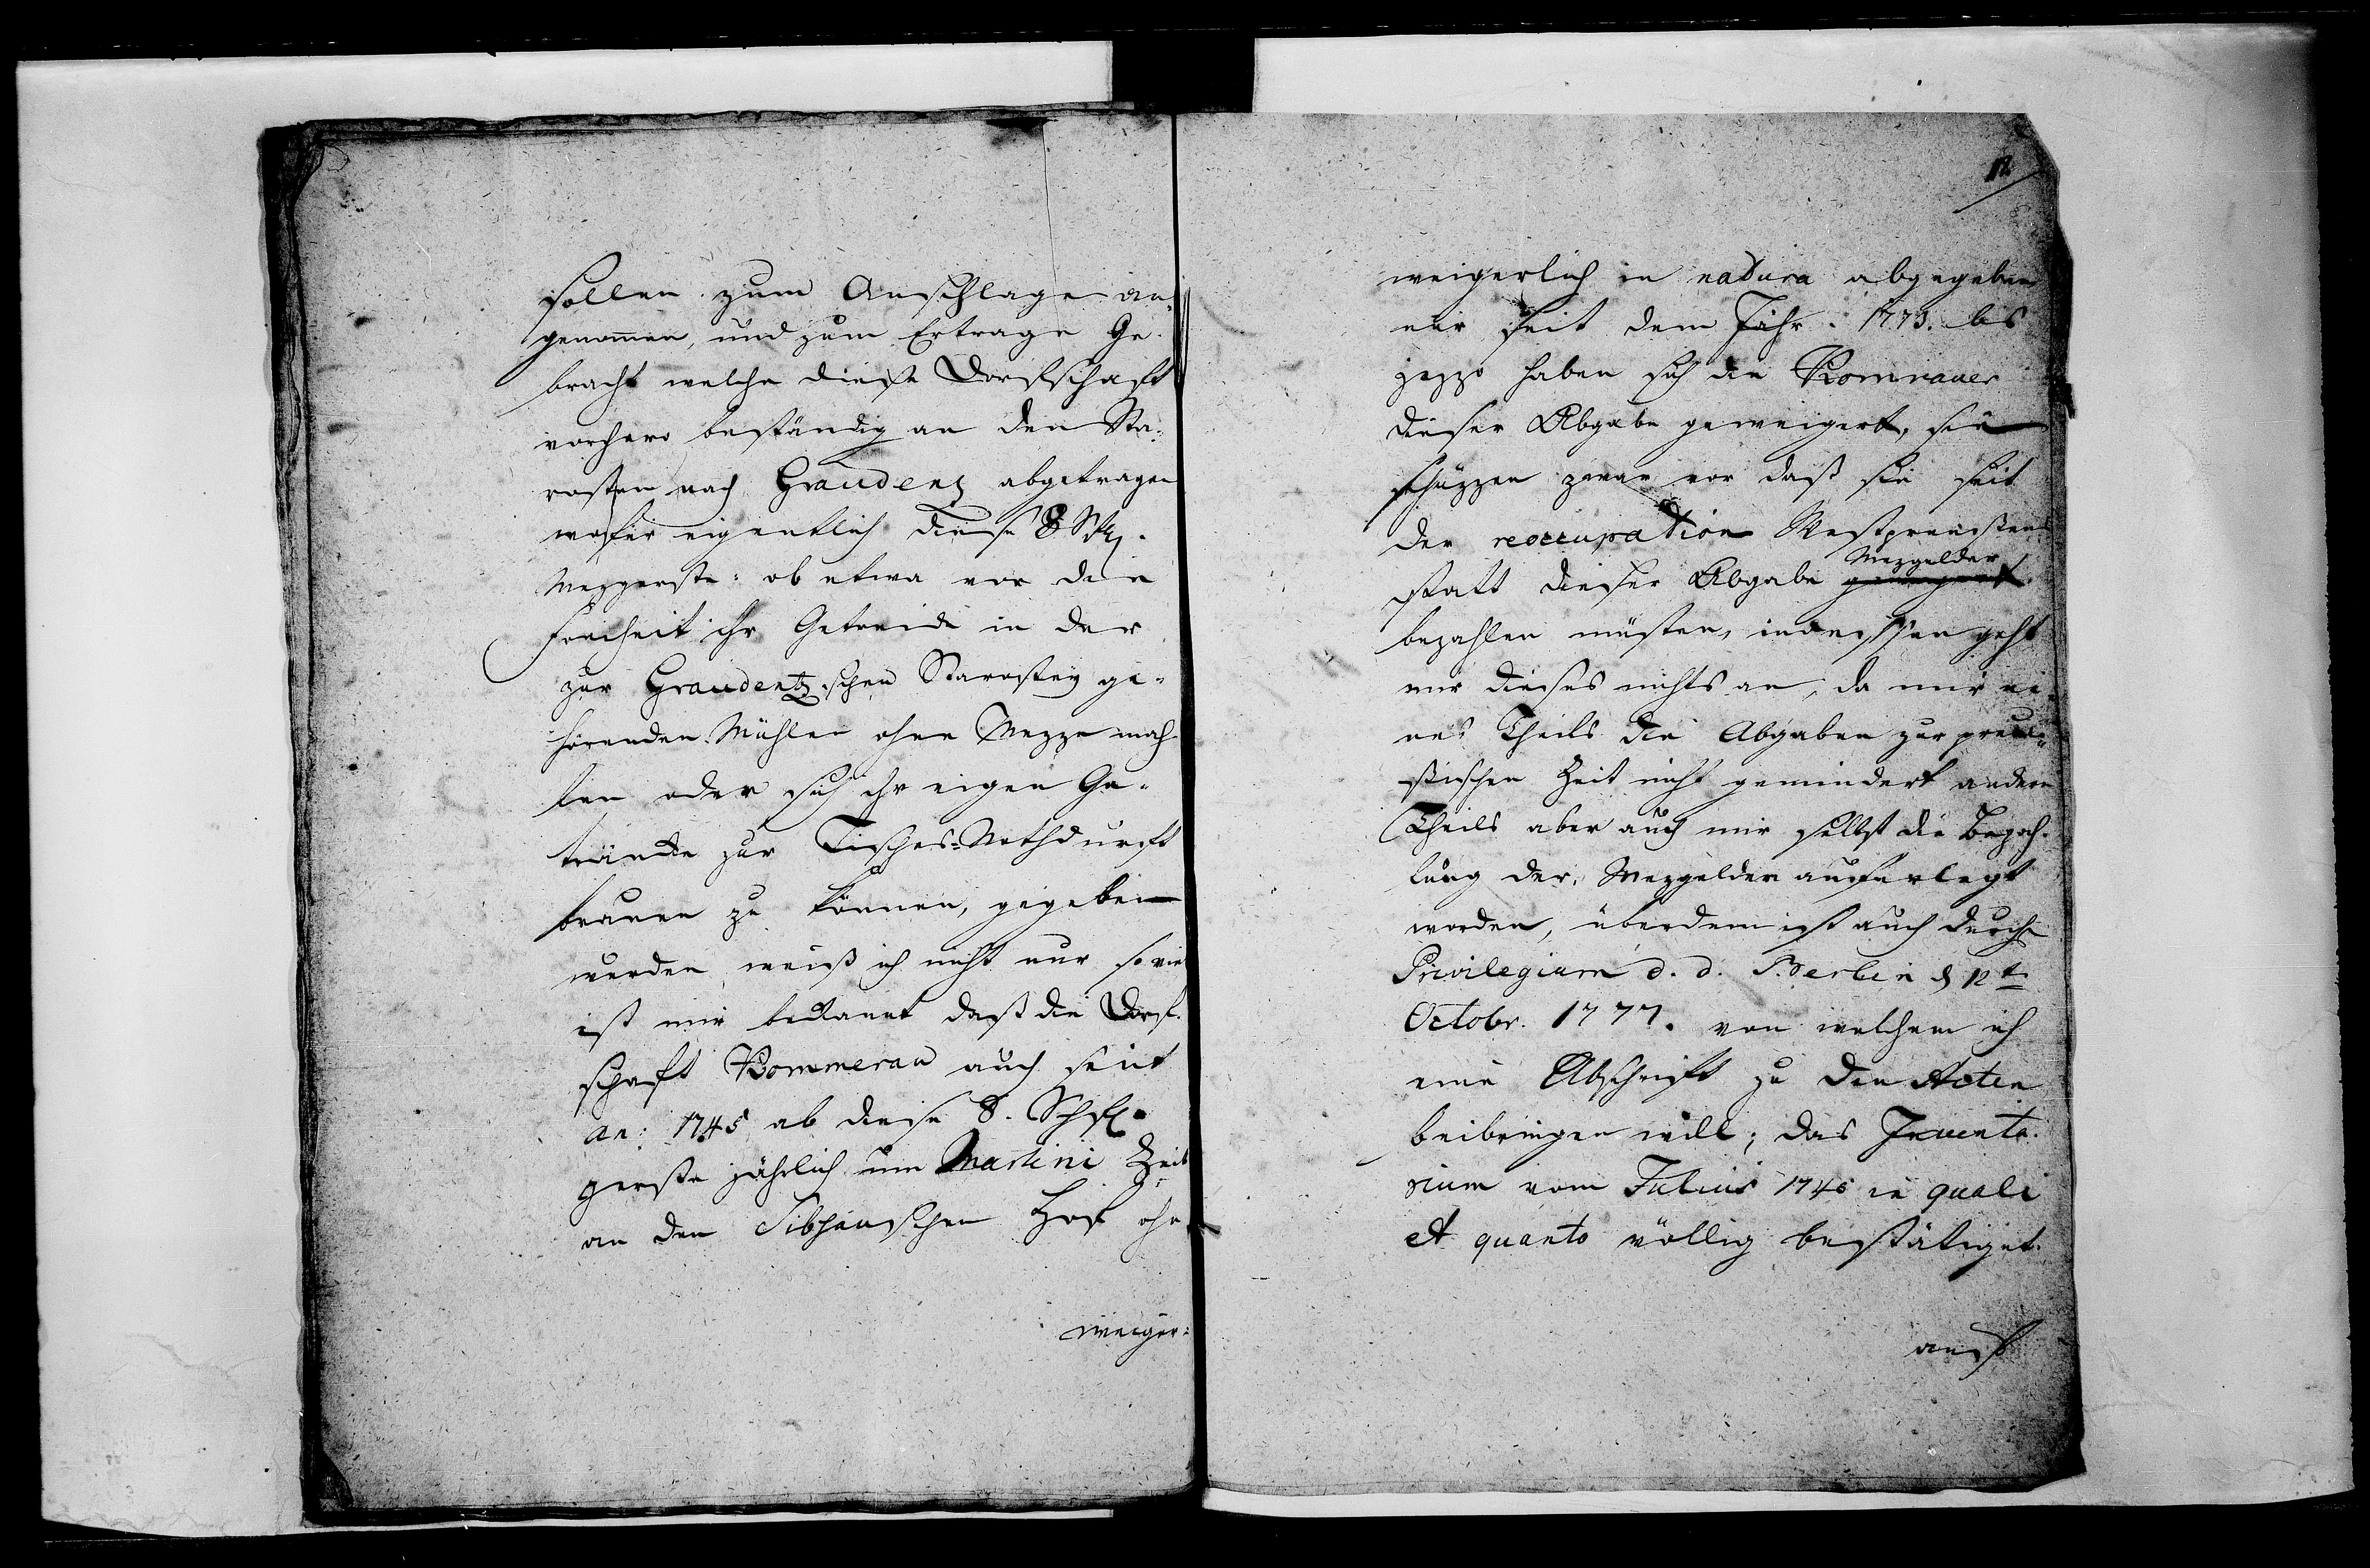 sollen zum Anschlage an-
genommen, und zum Ertrage Ge-
bracht welche diese Dorfschaft
vorhero beständig an den Sta-
rosten nach Graudenz abgetragen
wofür eigentlich diese 8 Schfl.
Mezgerste: ob etwa vor die
Freiheit ihr Getreide in der
zur Graudentz.schen Starostey ge-
hörenden Mühlen ohne Mezze mah-
len oder sich ihr eigen Ge-
tränke zur Tisches-Nothdurft
brauen zu können, gegeben
werden weiß ich nicht nur so viel
ist mir bekannt daß die Dorf-
schaft Kommerau auch seit
an: 1745 ab diese 8. Schfl.
gerste jährlich um Martini Zeit
an den Sibsauschen Hof ohn
weiger-
12
weigerlich in natura abgegeben
nur seit dem Jahr 1773. bis
jezzo haben sich die Komrauer
dieser Abgabe geweigert, sie
schüzzen zwar vor daß sie seit
der reoccupation Westpreußens
Mezgelder
statt dieser Abgabe geweigert
bezahlen müsten, indessen geht
mir dieses nichts an, da mir ei-
nes Theils die Abgaben zur preu-
ßischen Zeit nicht gemindert andern
Theils aber auch mir selbst die Bezah-
lung der Mezgelder auferlegt
worden, überdem ist auch durchs
Privilegium d. d. Berlin d 12t
Octobr. 1777. von welchem ich
eine Abschrift zu den Acten
beibringen will; das Inventa-
rium vom Julius 1745 in quali
et quanto völlig bestätiget.